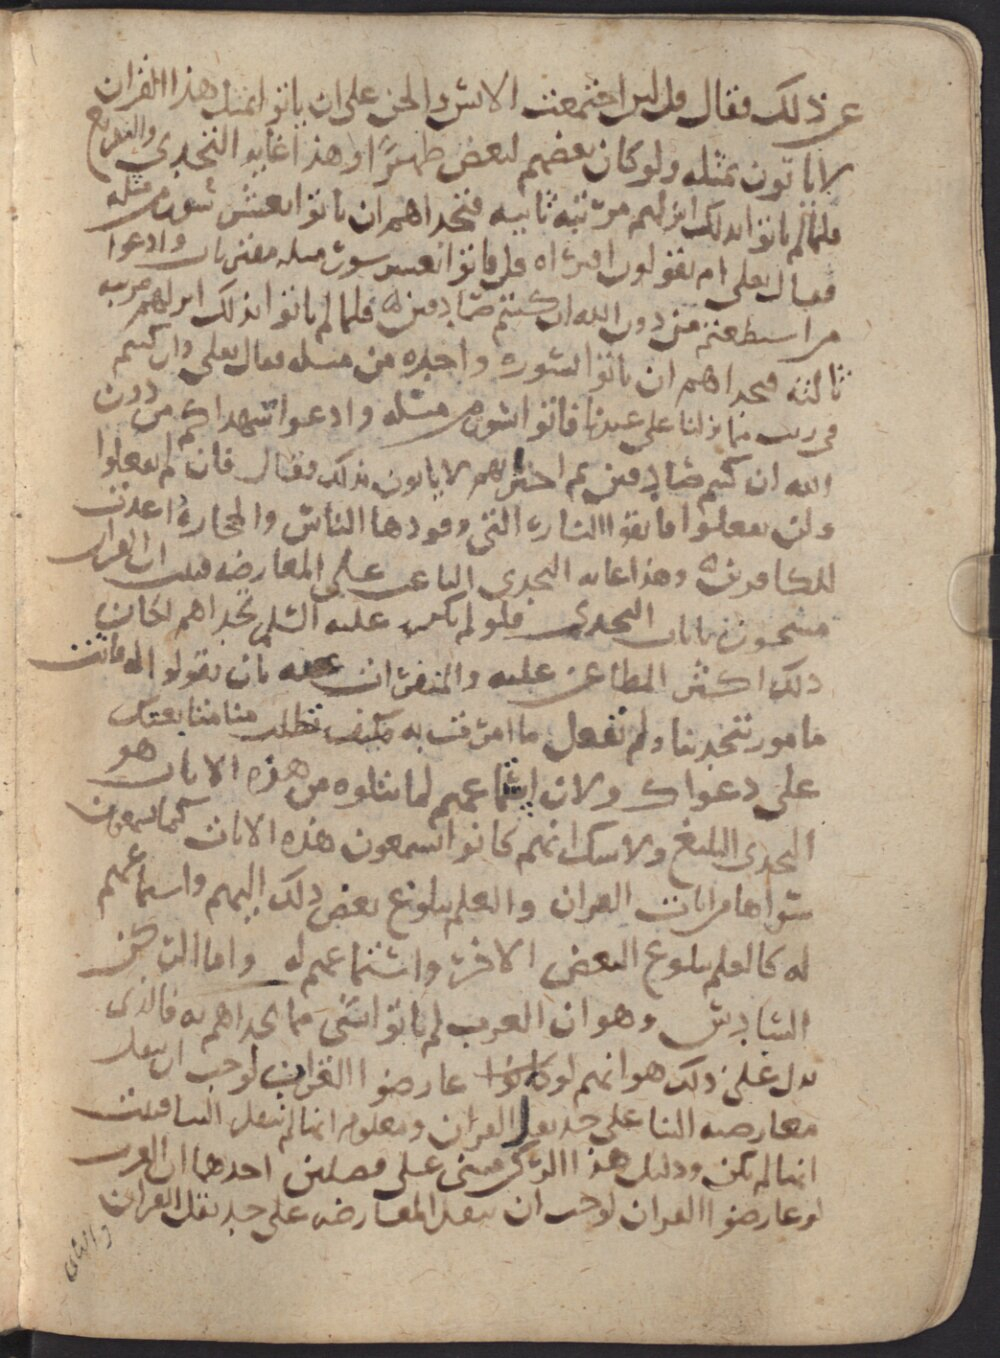 عن ذلك فقال قل لين اجتمعت الانس والجن على ان ياتوا بمثل هذا القران
لا ياتون بمثله ولو كان بعضهم لبعض ظهيرًا وهذا غاية التحدي والتقريع
فلما لم ياتوا بذلك انزلهم مرتبة ثانية فتحداهم ان ياتوا بعشر سور من مثله
فقال تعلى ام يقولون افتراه قل فاتوا بعشر سور مثله مفتريات وادعوا
من استطعتم من دون الله ان كنتم صادقين فلما لم ياتوا بذلك انزلهم مرتبة
ثالثة فتحداهم ان ياتوا بسورة واحدة من مثله فقال تعلى وان كنتم
في ريب مما نزلنا على عبدنا فاتوا بسورة من مثله وادعوا شهداكم من دون
الله ان كنتم صادقين ثم اخبر انهم لا ياتون بذلك فقال فان لم تفعلوا
ولن تفعلوا فاتقوا النار التي وقودها الناس والحجارة اعدت
للكافرين وهذا غاية التحدي الباعث على المعارضة فثبت ان القران
مشحون بايات التحدي فلو لم يكن عليه السلم تحداهم لكان
ذلك اكثر المطاعن عليه والمنفرات عنه بان يقولوا له فانت
مامور بتحدينا ولم تفعل ما امرت به فكيف تطلب منا متابعتك
على دعواك ولان استماعهم لما يتلوه من هذه الايات هو
التحدي البليغ ولا شك انهم كانوا يسمعون هذه الايات كما يسمعون
سواها من ايات القران والعلم ببلوغ بعض ذلك اليهم واستماعهم
له كالعلم ببلوغ البعض الاخر واستماعهم له واما الركن
السادس وهو ان العرب لم ياتوا بشي مما تحداهم به فالذي
يدل على ذلك هو انهم لو كانوا عارضوا القران لوجب ان ينقل
معارضته الينا على حد نقل القران ومعلوم انها لم تنقل الينا فثبت
انها لم تكن ودليل هذا الركن مبني على فصلين احدهما ان العرب
لو عارضوا القران لوجب ان ينقل المعارضة على حد نقل القران
والثاني